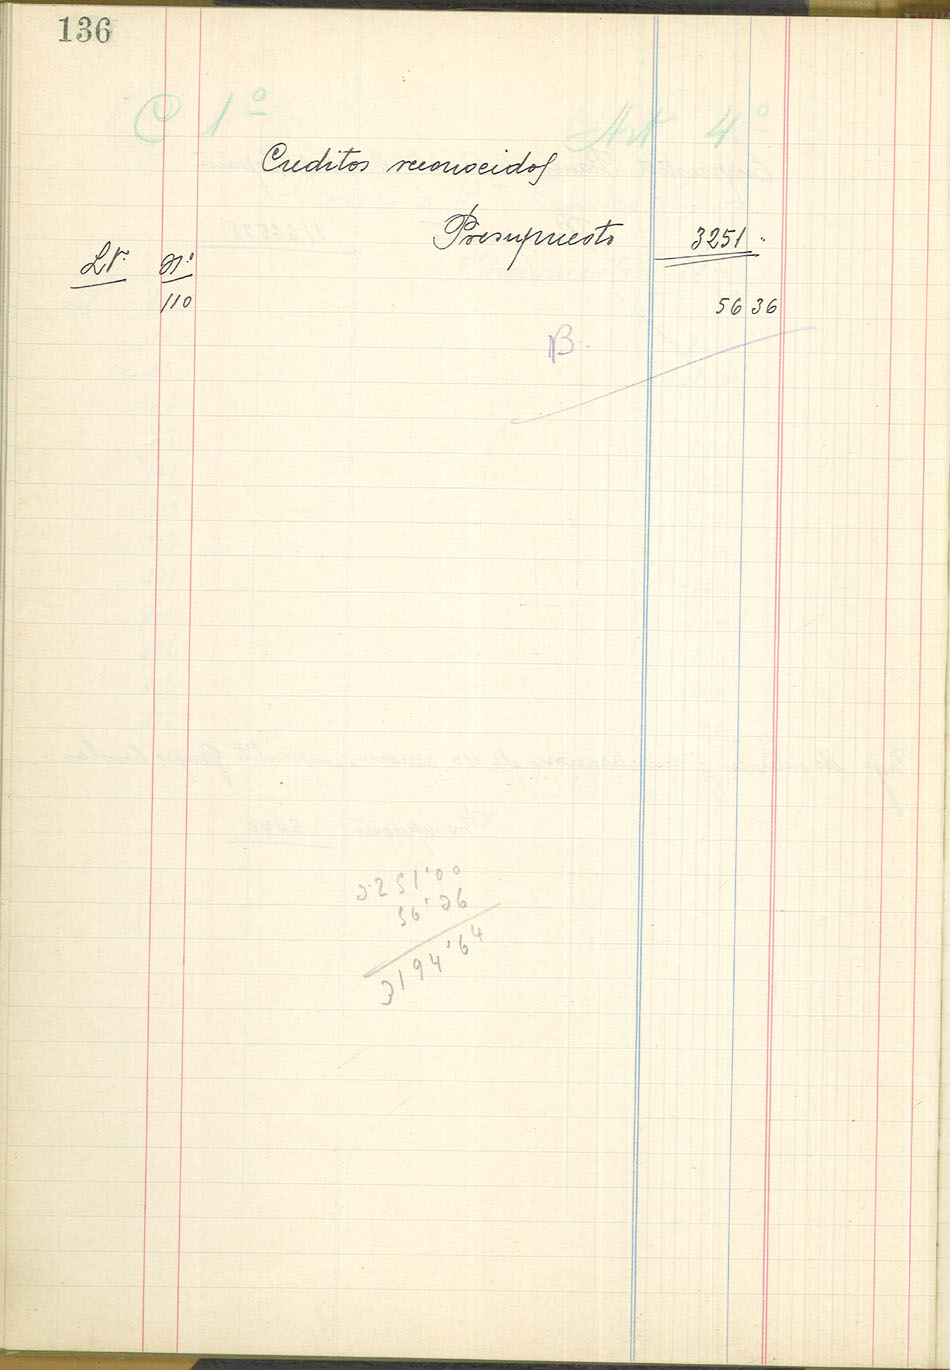 136
C 1º Art 4º
Creditos reconocidos
Presupuesto 3251.
Lº. Nº
110 56 36
B.
3251'00
56'36
3194'64